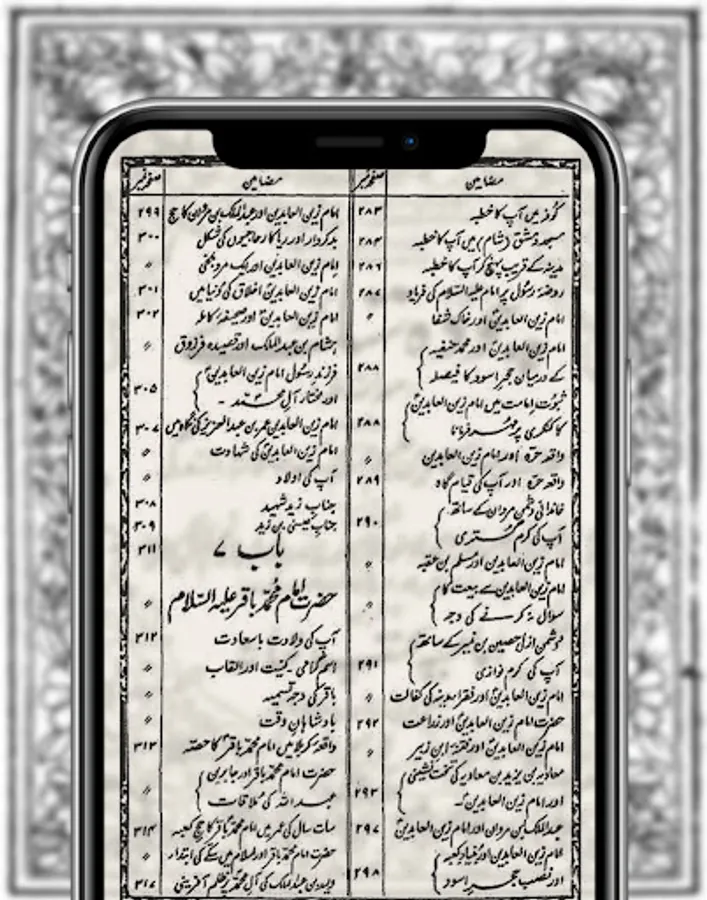 مضامین صفحہ نمبر
کوفہ میں آپ کا خطبہ ۲۸۳
مسجد دمشق (شام) میں آپ کا خطبہ ۲۸۴
مدینہ کے قریب پہنچ کر آپ کا خطبہ ۲۸۶
روضۂ رسولؐ پر امام علیہ السلام کی فریاد ۲۸۷
امام زین العابدینؑ اور خاک شفا 〃
امام زین العابدینؑ اور محمد حنفیہ
کے درمیان حجر اسود کا فیصلہ ۲۸۸
ثبوت امامت میں امام زین العابدینؑ
کا کنکری پر مہر فرمانا ۲۸۸
واقعہ حرّہ اور امام زین العابدین 〃
واقعہ حرّہ اور آپ کی قیام گاہ ۲۸۹
خاندانی دشمن مروان کے ساتھ
آپ کی کرم گستری ۲۹۰
امام زین العابدین اور مسلم بن عقبہ 〃
امام زین العابدین سے بیعت کا
سوال نہ کرنے کی وجہ 〃
دشمن ازلی حصین بن نمیر کے ساتھ
آپ کی کرم نوازی ۲۹۱
امام زین العابدینؑ اور فقراء مدینہ کی کفالت 〃
حضرت امام زین العابدینؑ اور زراعت ۲۹۲
امام زین العابدینؑ اور فتنۂ ابن زبیر 〃
معاویہ بن یزید بن معاویہ کی تخت نشینی
اور امام زین العابدینؑ۔ ۲۹۳
عبدالملک بن مروان اور امام زین العابدینؑ ۲۹۷
امام زین العابدین اور بنیاد کعبہ
اور نصب حجر اسود ۲۹۸
مضامین صفحہ نمبر
امام زین العابدین اور عبدالملک بن مروان کا حج ۲۹۹
بدکردار اور ریاکار حاجیوں کی شکل ۳۰۰
امام زین العابدین اور ایک مرد بلخی 〃
امام زین العابدینؑ اخلاق کی دنیا میں ۳۰۱
امام زین العابدینؑ اور صحیفہ کاملہ ۳۰۲
ہشام بن عبدالملک اور قصیدہ فرزوق 〃
فرزند رسول امام زین العابدینؑ
اور مختار آل محمد۔ ۳۰۵
امام زین العابدین عمر بن عبدالعزیز کی نگاہ میں ۳۰۷
امام زین العابدینؑ کی شہادت 〃
آپ کی اولاد 〃
جناب زید شہید ۳۰۸
جناب عیسیٰ بن زید ۳۰۹
باب ۷ ۳۱۱
حضرت امام محمد باقر علیہ السلام 〃
آپ کی ولادت باسعادت ۳۱۲
اسم گرامی۔ کنیت اور القاب 〃
باقر کی وجہ تسمیہ 〃
بادشاہان وقت 〃
واقعۂ کربلا میں امام محمد باقرؑ کا حصہ ۳۱۳
حضرت امام محمد باقر اور جابر بن
عبداللہ کی ملاقات 〃
سات سال کی عمر میں امام محمد باقر کا حج کعبہ ۳۱۴
حضرت امام محمد باقر اور اسلام میں سکے کی ابتداء 〃
ولید بن عبدالملک کی آل محمد پر ظلم آفرینی ۳۱۷